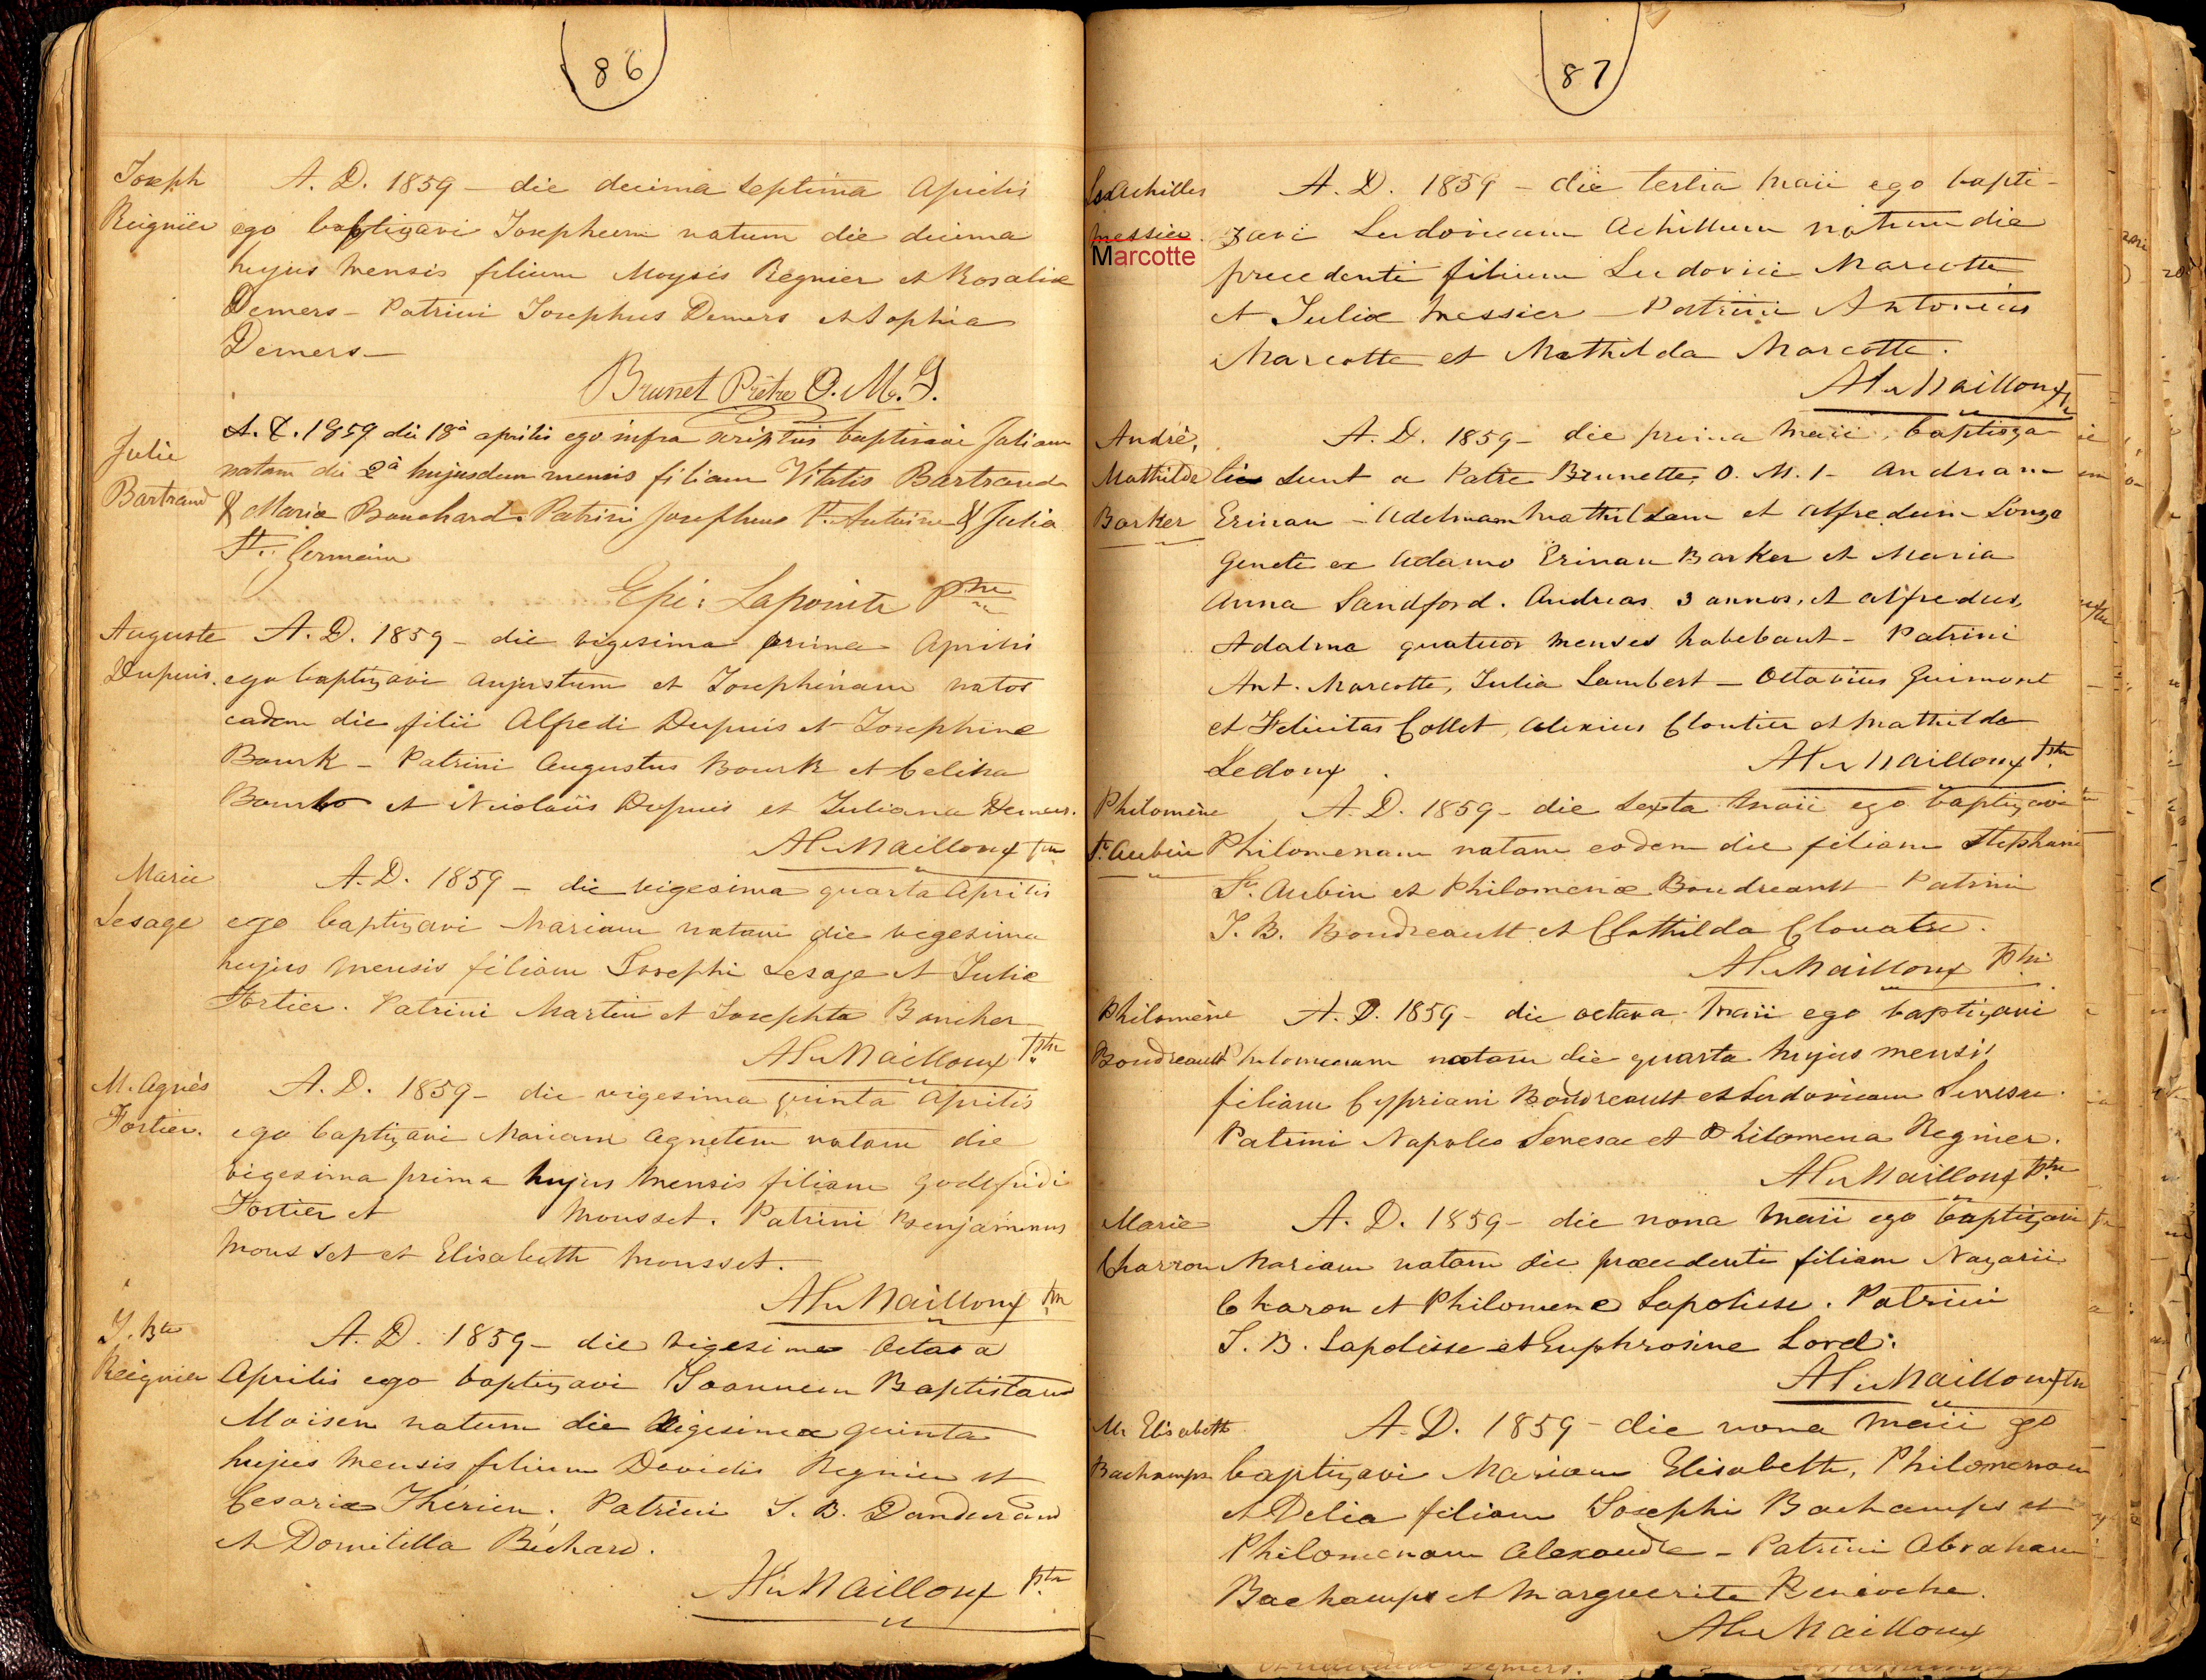 86
Joseph
Reignier
A. D. 1859 – die decima septima Aprilis
ego baptizavi Josephum natum die decima
hujus mensis filium Moysis Regnier et Rosaliæ
Demers – Patrini Josephus Demers et Sophia
Demers –
Brunet Prêtre O. M. I.
Julie
Bartrand
A. D. 1859 die 18a aprilis ego infra scriptus baptisavi Juliam
natam die 2a hujusdem mensis filiam Vitalis Bartrand
& Maria Bouchard. Patrini Josephus St. Antoine & Julia
St. Germain
Epi: Lapointe Ptre
Auguste
Dupuis.
A. D. 1859 – die vigesima prima Aprilis
ego baptizavi Augustum et Josephinam natos
eadem die filii Alfredi Dupuis et Josephine
Bourk – Patrini Augustus Bourk et Celina
et Nicolaüs Dupuis et Juliana Demers.
Al. Mailloux Ptre
Marie
Lesage
A. D. 1859 – die vigesima quarta Aprilis
ego baptizavi Mariam natam die vigesima
hujus mensis filiam Josephi Lesage et Juliæ
Fortier. Patrini Martin et Josephta Boucher
Al. Mailloux Ptre
M. Agnès
Fortier.
A. D. 1859 – die vigesima quinta Aprilis
ego baptizavi Mariam Agnetem natam die
vigesima prima hujus mensis filiam Godefridi
Fortier et Mousset. Patrini Benjaminus
Mousset et Elisabeth Mousset.
Al. Mailloux Ptre
J. Bte
Reignier
A. D. 1859 – die vigesima Octava
Aprilis ego baptizavi Joannem Baptistam
Moisen natum die vigesima quinta
hujus mensis filium Davidis Regnier et
Cesariæ Therien. Patrini J. B. Dandurand
et Domitilla Béchard.
Al. Mailloux Ptre
87
Ls Achilles
Messier
Marcotte
A. D. 1859 – die tertia Maii ego bapti-
zavi Ludovicum Achillum natum die
precedenti filium Ludovici Marcotte
et Juliæ Messier – Patrini Antonius
Marcotte et Mathilda Marcotte.
Al. Mailloux
André,
Mathilde
Barker
A. D. 1859 – die prima Maii, baptiza
sunt a Patre Brunette, O. M. I – Andream
Erinau – Adelmam Mathildam et Alfredum Longo
Genete ex Adamo Erinau Barker et Maria
Anna Sandford. Andreas 3 annos, et Alfredus,
Adalma quatuor menses habebant – Patrini
Ant. Marcotte, Julia Lambert – Octavius Guimont
et Felicitas Collet, Alexius Cloutier et Mathilda
Ledoux.
Al. Mailloux Ptre
Philomène
St. Aubin
A. D. 1859 – die Sexta Maii ego baptizavi
Philomenam natam eodem die filiam Stephani
St. Aubin et Philomenæ Boudreault – Patrini
J. B. Boudreault et Clothilda Clouatre.
Al. Mailloux Ptre
Philomène
Boudreault
A. D. 1859 – die octava Maii ego baptizavi
Philomenam natam die quarta hujus mensis
filiam Cypriani Boudreault et Ludovicam Senesac.
Patrini Napoleo Senesac et Philomena Regnier.
Al. Mailloux Ptre
Marie
Charron
A. D. 1859 – die nona Maii ego baptizavi
Mariam natam die præcedenti filiam Nazarii
Charon et Philomene Lapolisse. Patrini
J. B. Lapolisse et Euphrosine Lord.
Al. Mailloux Ptre
M. Elisabeth
Bachamps
A. D. 1859 – die nona Maii ego
baptizavi Mariam Elisabeth, Philomenam
et Delia filiam Josephi Bachamps et
Philomenam Alexandre – Patrini Abraham
Bachamps et Marguerite
Al. Mailloux